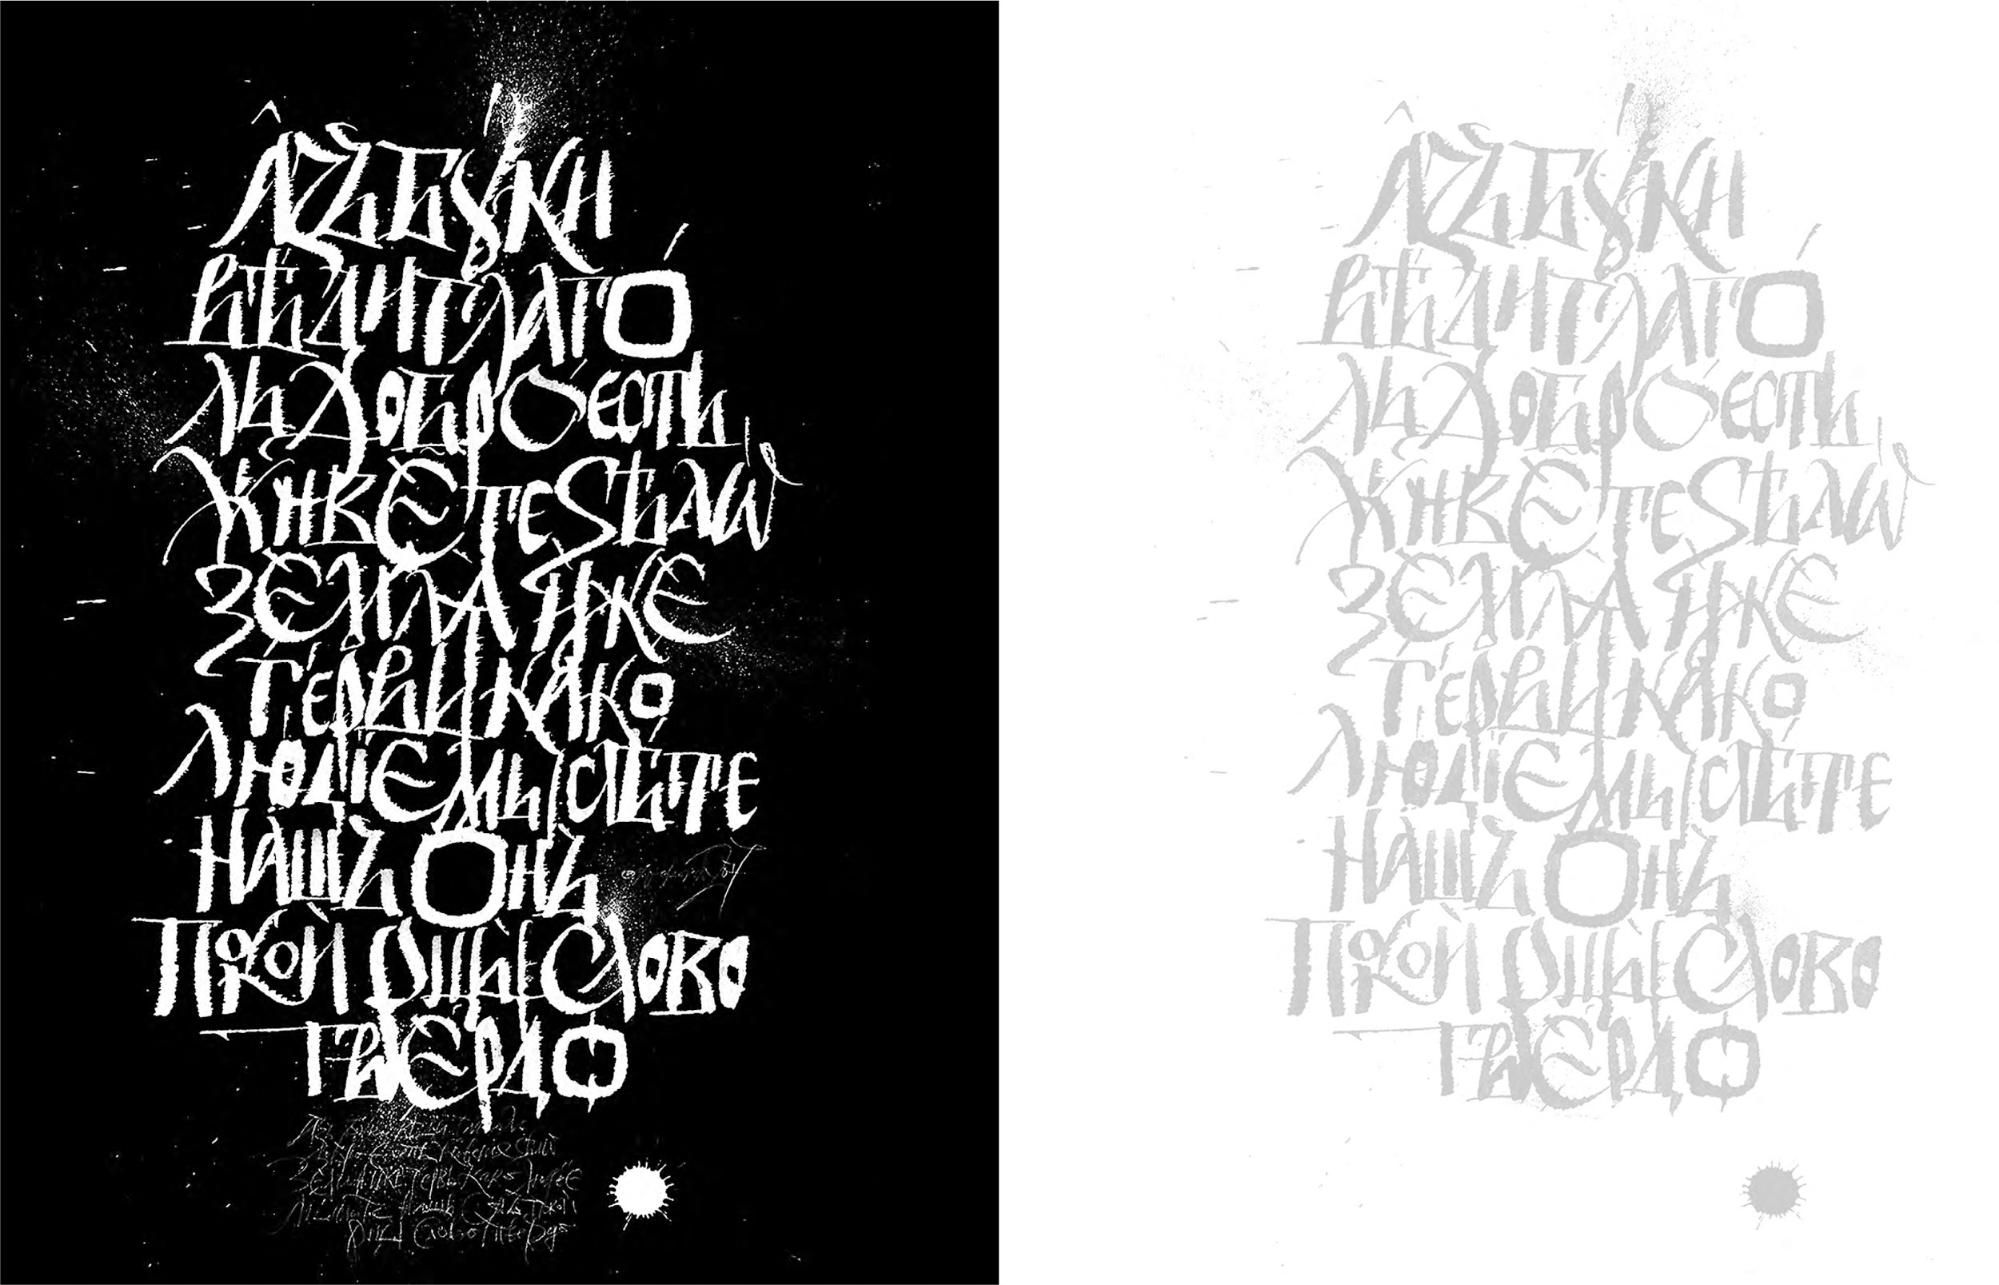 Азъ Буки
Вѣди Глаго
ль Добро Есть
Живете Ѕѣлѡ
Земля Иже
Гервь Како
Людіе Мыслѣте
Нашъ Онъ
Покой Рцы Слово
Твердо
Азъ Буки
Вѣди Глаго
ль Добро Есть
Живете Ѕѣлѡ
Земля Иже
Гервь Како
Людіе Мыслѣте
Нашъ Онъ
Покой Рцы Слово
Твердо